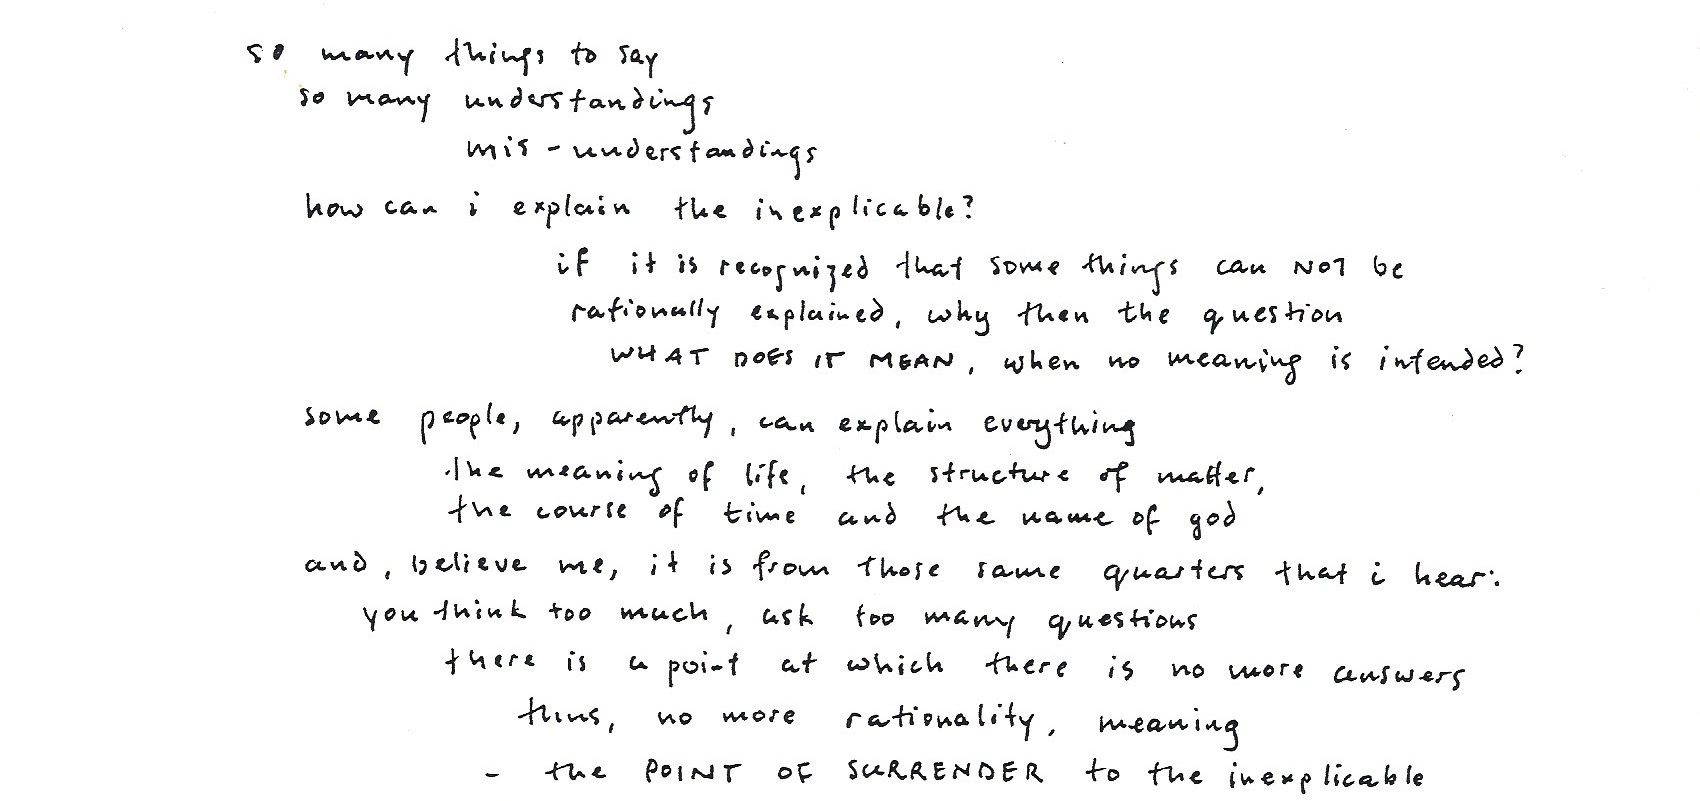 so many things to say
so many understandings
mis-understandings
how can i explain the inexplicable?
if it is recognized that some things can NOT be
rationally explained, why then the question
WHAT DOES IT MEAN, when no meaning is intended?
some people, apparently, can explain everything
the meaning of life, the structure of matter,
the course of time and the name of god
and, believe me, it is from those same quarters that i hear:
you think too much, ask too many questions
there is a point at which there is no more answers
thus, no more rationality, meaning
- the POINT OF SURRENDER to the inexplicable